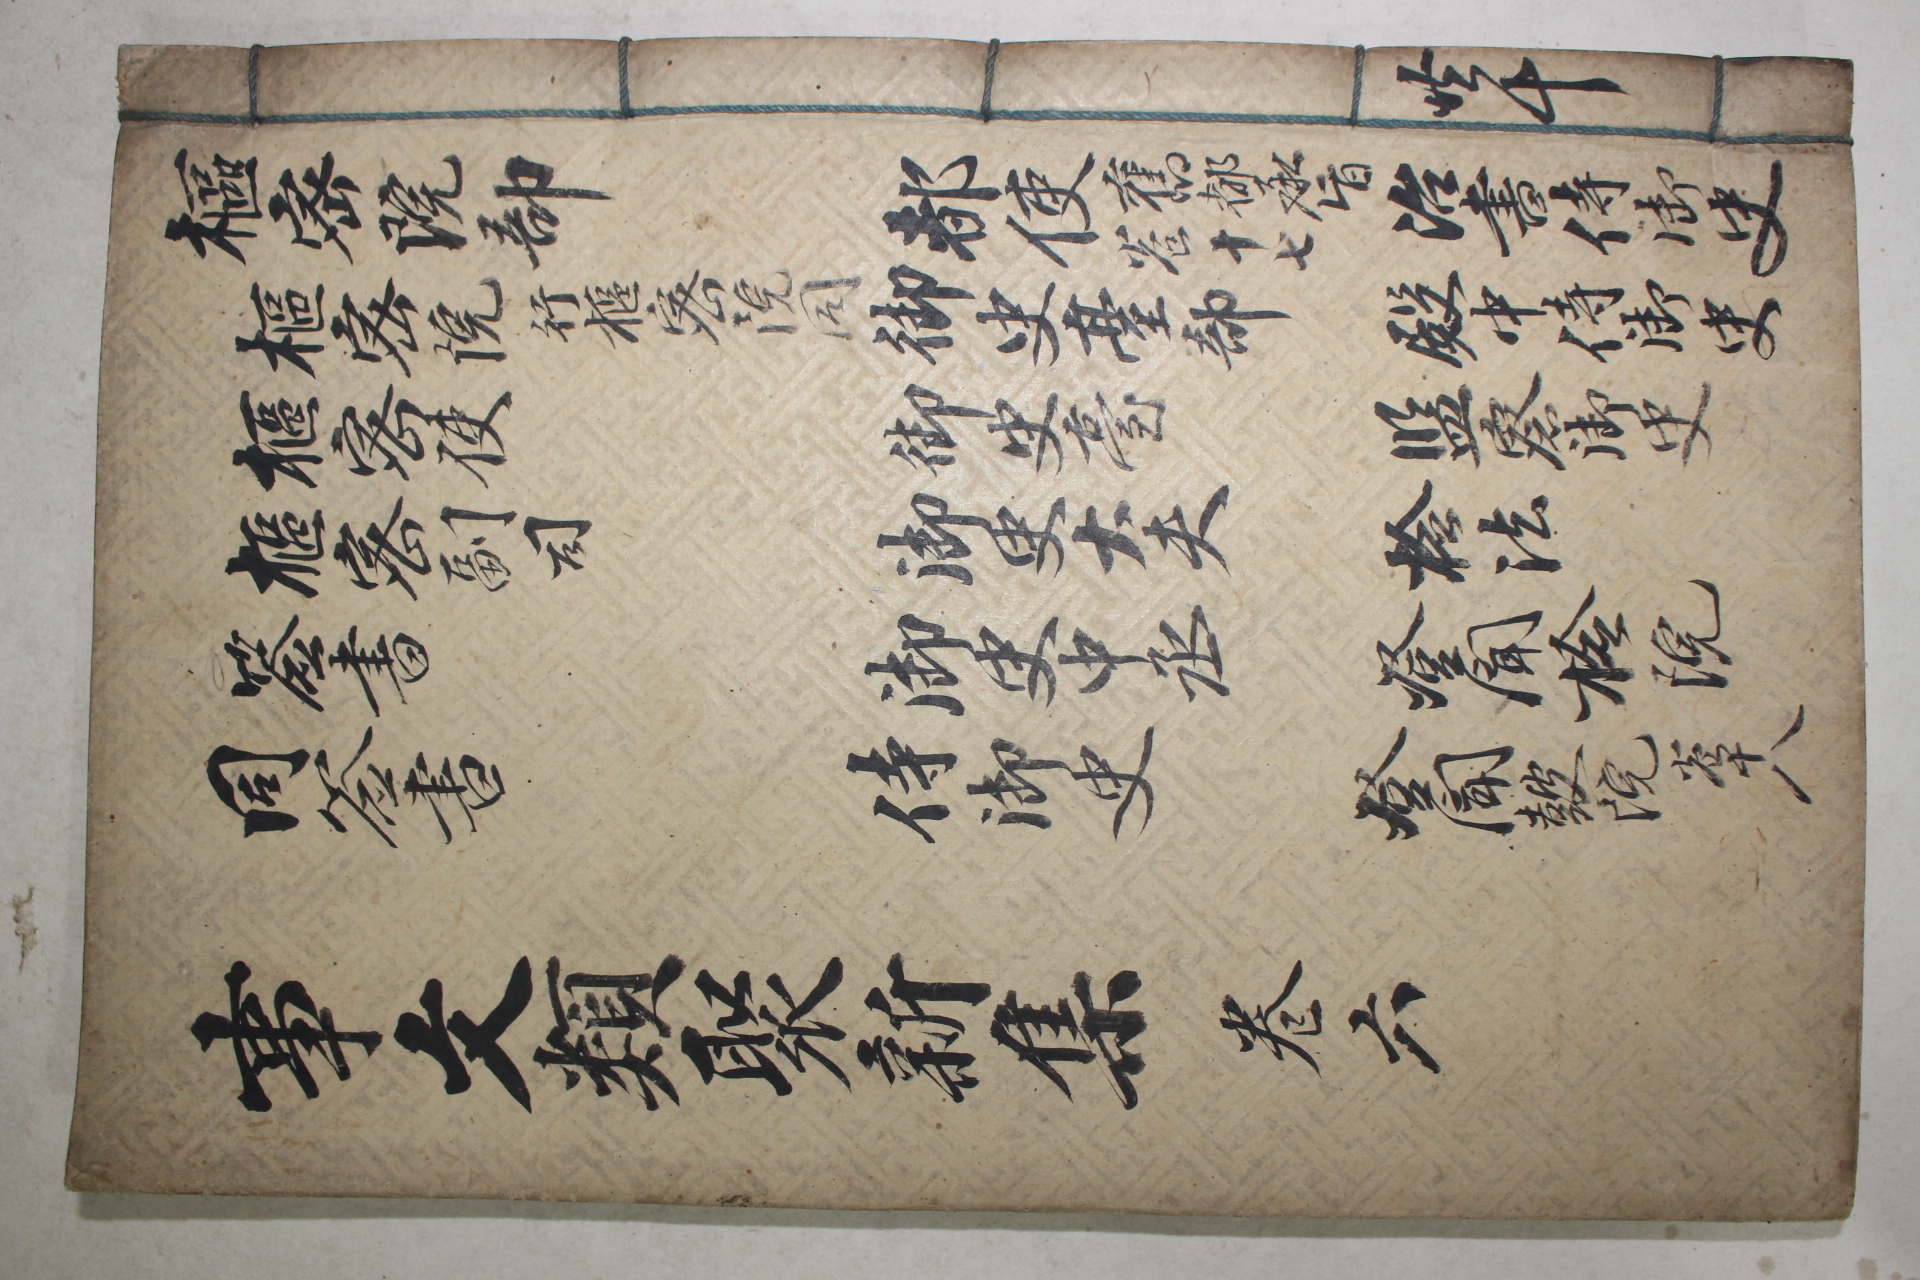 樞密院部
樞密院 行樞密院同
樞密使
樞密副司
签書
同签書
都使 舊都承旨
卷十七
御史臺部
御史臺
御史大夫
御史中丞
侍御史
治書侍御史
殿中侍御史
监察御史
检法
登聞检院
登聞皷院 卷十八
事文類聚新集 卷六